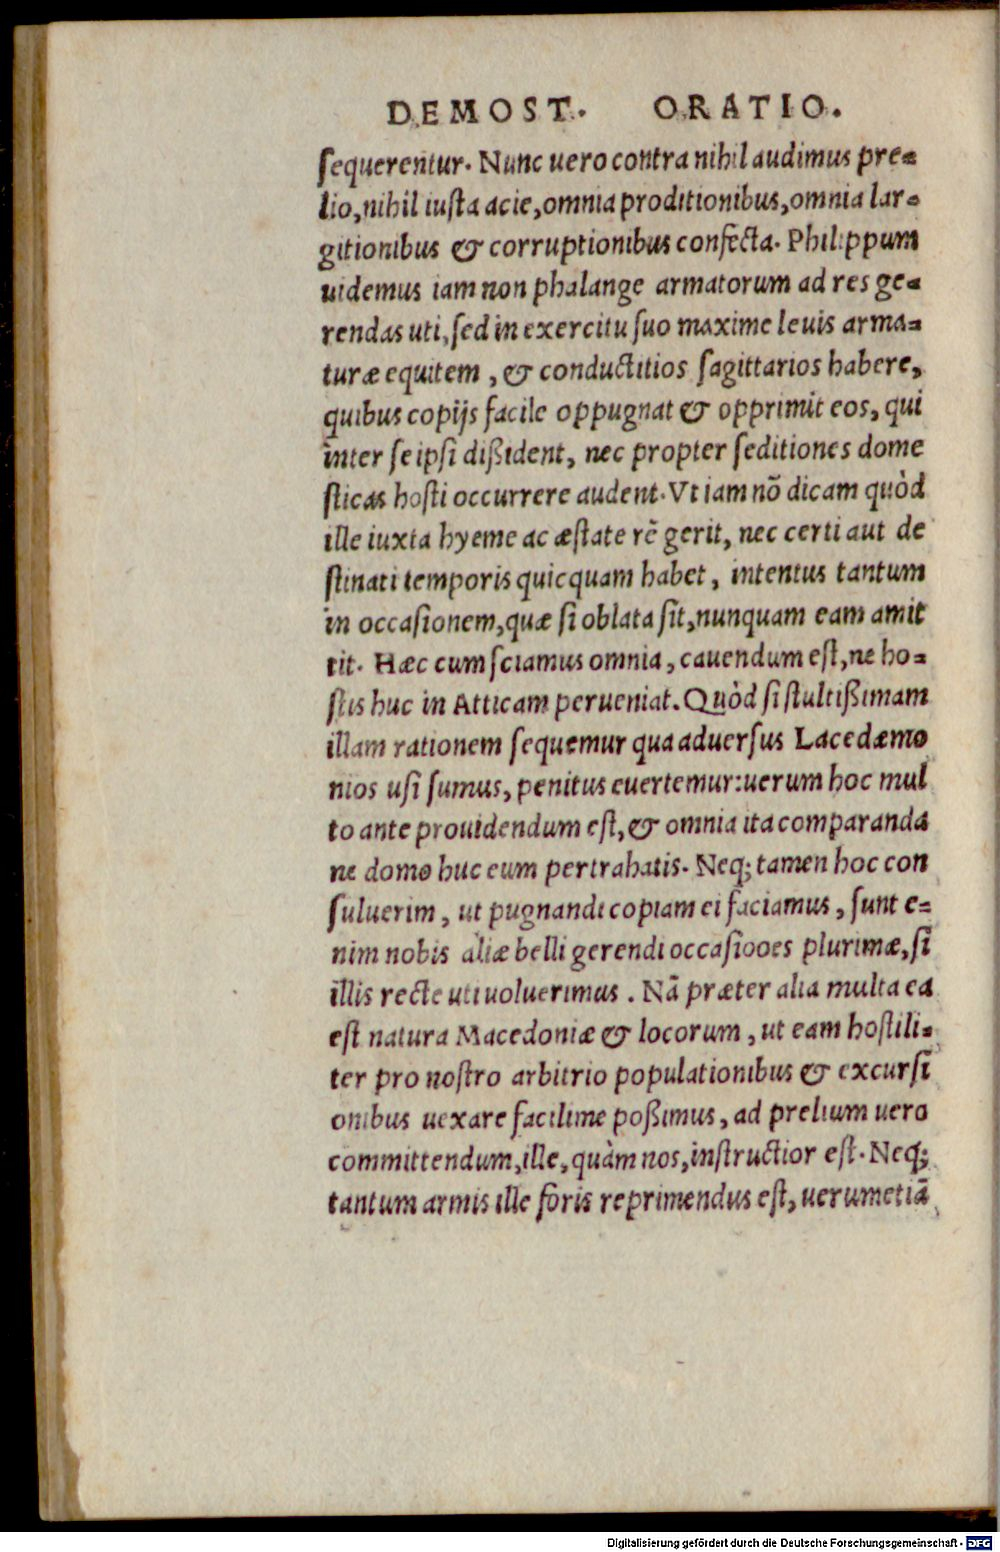 DEMOST. ORATIO.
sequerentur. Nunc uero contra nihil audimus pre-
lio, nihil iusta acie, omnia proditionibus, omnia lar-
gitionibus & corruptionibus confecta. Philippum
uidemus iam non phalange armatorum ad res ge-
rendas uti, sed in exercitu suo maxime leuis arma-
turæ equitem, & conductitios sagittarios habere,
quibus copijs facile oppugnat & opprimit eos, qui
inter se ipsi dißident, nec propter seditiones dome
sticas hosti occurrere audent. Vt iam nõ dicam quòd
ille iuxta hyeme ac æstate rẽ gerit, nec certi aut de
stinati temporis quicquam habet, intentus tantum
in occasionem, quæ si oblata sit, nunquam eam amit
tit. Hæc cum sciamus omnia, cauendum est, ne ho-
stis huc in Atticam perueniat. Quòd si stultißimam
illam rationem sequemur qua aduersus Lacedæmo
nios usi sumus, penitus euertemur: uerum hoc mul
to ante prouidendum est, & omnia ita comparanda
ne domo huc eum pertrahatis. Neq; tamen hoc con
suluerim, ut pugnandi copiam ei faciamus, sunt e-
nim nobis aliæ belli gerendi occasiooes plurimæ, si
illis recte uti uoluerimus. Nã præter alia multa ea
est natura Macedoniæ & locorum, ut eam hostili-
ter pro nostro arbitrio populationibus & excursi
onibus uexare facilime poßimus, ad prelium uero
committendum, ille, quàm nos, instructior est. Neq;
tantum armis ille foris reprimendus est, uerumetiã
Digitalisierung gefördert durch die Deutsche Forschungsgemeinschaft - DFG